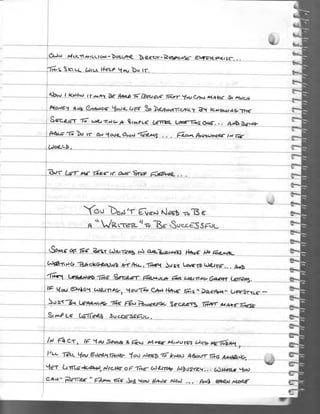 OWN MULTI-MILLION-DOLLAR DIRECT-RESPONSE ENTERPRISE...
THIS SKILL WILL HELP YOU DO IT.
NOW I KNOW IT MAY BE HARD TO BELIEVE THAT YOU CAN MAKE SO MUCH
MONEY AND CHANGE YOUR LIFE SO DRAMATICALLY BY KNOWING THE
SECRET TO WRITING A SIMPLE LETTER LIKE THIS ONE... AND BEING
ABLE TO DO IT ON YOUR OWN TERMS... FROM ANYWHERE IN THE
WORLD.
BUT LET ME TAKE IT ONE STEP FURTHER...
YOU DON'T EVEN NEED TO BE
A "WRITER" TO BE SUCCESSFUL
SOME OF THE BEST WRITERS IN OUR BUSINESS HAVE NO FORMAL
WRITING BACKGROUND AT ALL. THEY JUST LOVE TO WRITE... AND
THEY LEARNED THE SECRET FORMULA FOR WRITING GREAT LETTERS.
IF YOU ENJOY WRITING, YOU TOO CAN HAVE THIS "DREAM" LIFESTYLE —
JUST BY LEARNING THE FEW POWERFUL SECRETS THAT MAKE THESE
SIMPLE LETTERS SUCCESSFUL.
IN FACT, IF YOU SPEND A FEW MORE MINUTES WITH ME TODAY,
I'LL TELL YOU EVERYTHING YOU NEED TO KNOW ABOUT THIS AMAZING,
YET LITTLE-KNOWN, NICHE OF THE WRITING INDUSTRY... WHERE YOU
CAN "RETIRE" FROM THE JOB YOU HAVE NOW... AND EARN MORE